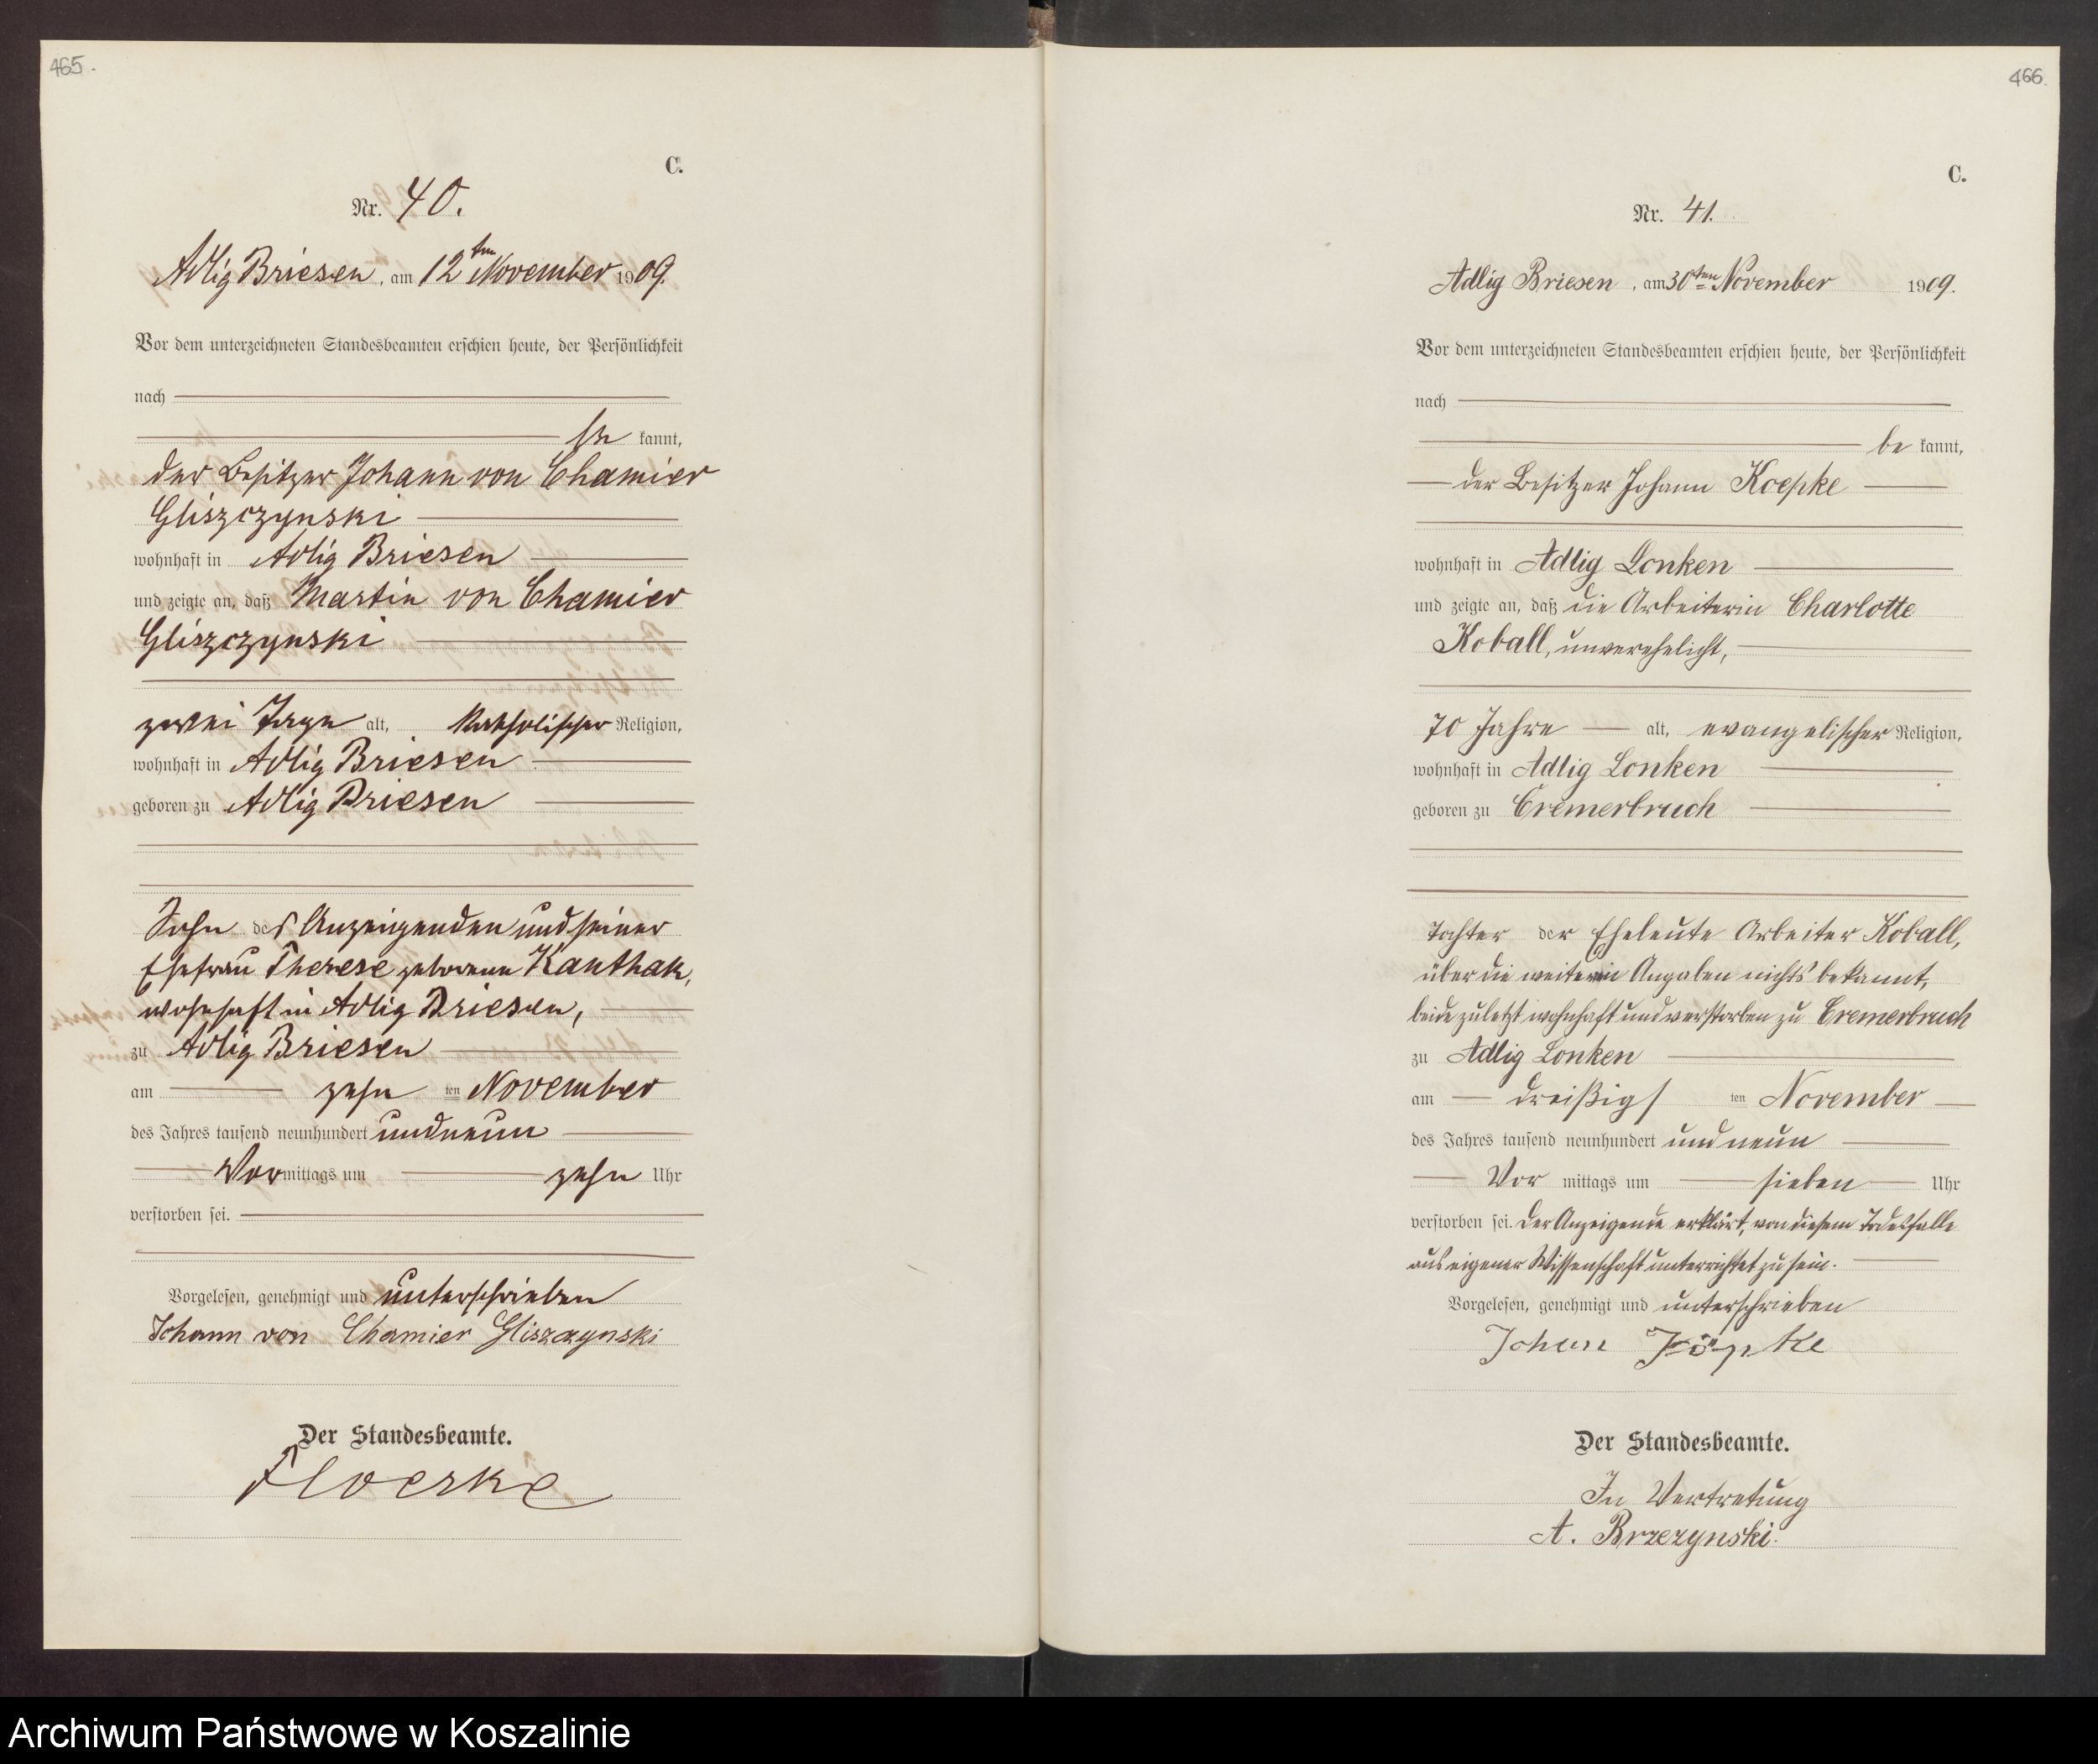 465.
C.
Nr. 40.
Adlig Briesen, am 12ten November 1909.
Vor dem unterzeichneten Standesbeamten erschien heute, der Persönlichkeit
nach
be kannt,
der Besitzer Johann von Chamier
Gliszczynski
wohnhaft in Adlig Briesen
und zeigte an, daß Martin von Chamier
Gliszczynski
zwei Tage alt, katholischer Religion,
wohnhaft in Adlig Briesen
geboren zu Adlig Briesen
Sohn des Anzeigenden und seiner
Ehefrau Therese geborene Kanthak,
wohnhaft in Adlig Briesen,
zu Adlig Briesen
am zehn ten November
des Jahres tausend neunhundert und neun
Vormittags um zehn Uhr
verstorben sei.
Vorgelesen, genehmigt und unterschrieben
Johann von Chamier Gliszczynski
Der Standesbeamte.
Floerke
466.
C.
Nr. 41.
Adlig Briesen, am 30ten November 1909.
Vor dem unterzeichneten Standesbeamten erschien heute, der Persönlichkeit
nach
be kannt,
der Besitzer Johann Koepke
wohnhaft in Adlig Lonken
und zeigte an, daß die Arbeiterin Charlotte
Koball, unverehelicht,
70 Jahre alt, evangelischer Religion,
wohnhaft in Adlig Lonken
geboren zu Cremerbruch
Tochter der Eheleute Arbeiter Koball,
über die weiteren Angaben nichts bekannt,
beide zuletzt wohnhaft und verstorben zu Cremerbruch
zu Adlig Lonken
am dreißigs ten November
des Jahres tausend neunhundert und neun
Vor mittags um sieben Uhr
verstorben sei. Der Anzeigende erklärt, von diesem Todesfalle
aus eigener Wissenschaft unterrichtet zu sein.
Vorgelesen, genehmigt und unterschrieben
Johan Köpke
Der Standesbeamte.
In Vertretung
A. Brzezynski.
Archiwum Państwowe w Koszalinie